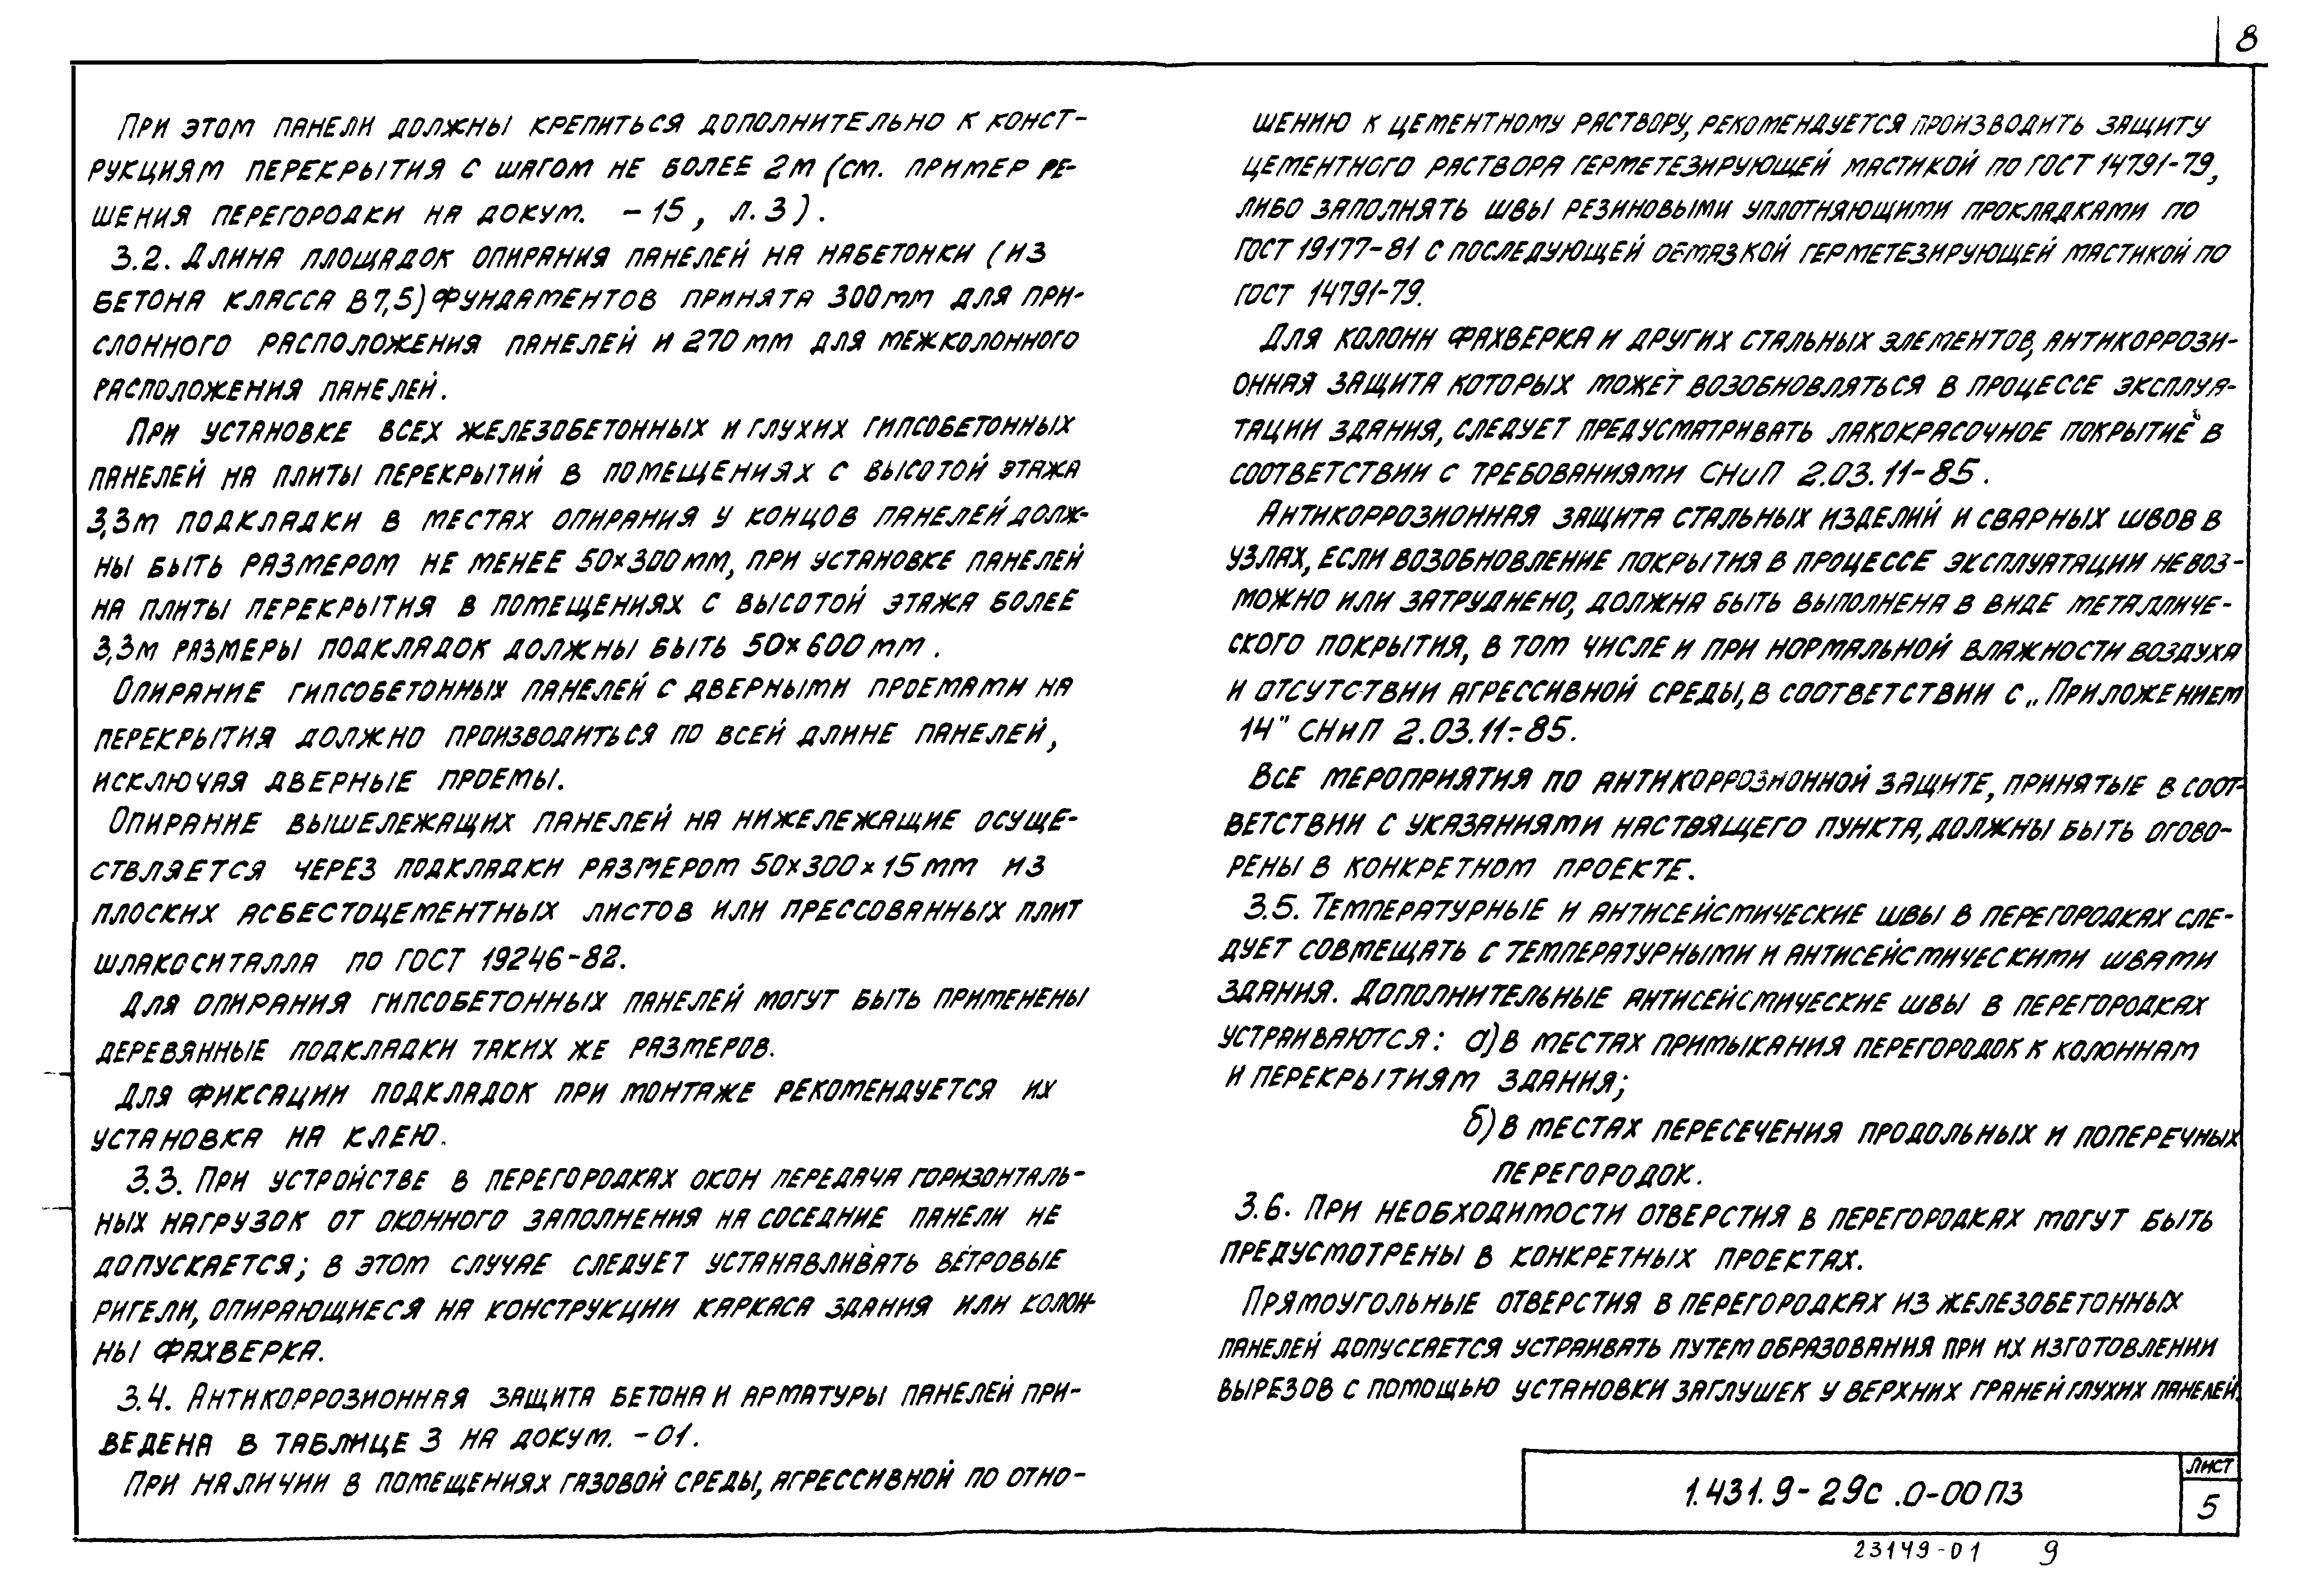 8
При этом панели должны крепиться дополнительно к конст-
рукциям перекрытия с шагом не более 2м (см. пример ре-
шения перегородки на докум. -15, л.3).
3.2. Длина площадок опирания панелей на набетонки (из
бетона класса В7,5) фундаментов принята 300мм для при-
слонного расположения панелей и 270 мм для межколонного
расположения панелей.
При установке всех железобетонных и глухих гипсобетонных
панелей на плиты перекрытий в помещениях с высотой этажа
3,3м подкладки в местах опирания у концов панелей долж-
ны быть размером не менее 50×300мм, при установке панелей
на плиты перекрытия в помещениях с высотой этажа более
3,3м размеры подкладок должны быть 50×600 мм.
Опирание гипсобетонных панелей с дверными проемами на
перекрытия должно производиться по всей длине панелей,
исключая дверные проемы.
Опирание вышележащих панелей на нижележащие осуще-
ствляется через подкладки размером 50×300×15мм из
плоских асбестоцементных листов или прессованных плит
шлакоситалла по ГОСТ 19246-82.
Для опирания гипсобетонных панелей могут быть применены
деревянные подкладки таких же размеров.
Для фиксации подкладок при монтаже рекомендуется их
установка на клею.
3.3. При устройстве в перегородках окон передача горизонталь-
ных нагрузок от оконного заполнения на соседние панели не
допускается; в этом случае следует устанавливать ветровые
ригели, опирающиеся на конструкции каркаса здания или колон-
ны фахверка.
3.4. Антикоррозионная защита бетона и арматуры панелей при-
ведена в таблице 3 на докум. -01.
При наличии в помещениях газовой среды, агрессивной по отно-
шению к цементному раствору, рекомендуется производить защиту
цементного раствора герметезирующей мастикой по ГОСТ 14791-79,
либо заполнять швы резиновыми уплотняющими прокладками по
ГОСТ 19177-81 с последующей обмазкой герметезирующей мастикой по
ГОСТ 14791-79.
Для колонн фахверка и других стальных элементов, антикоррози-
онная защита которых может возобновляться в процессе эксплуа-
тации здания, следует предусматривать лакокрасочное покрытие в
соответствии с требованиями СНиП 2.03.11-85.
Антикоррозионная защита стальных изделий и сварных швов в
узлах, если возобновление покрытия в процессе эксплуатации невоз-
можно или затруднено, должна быть выполнена в виде металличе-
ского покрытия, в том числе и при нормальной влажности воздуха
и отсутствии агрессивной среды, в соответствии с „Приложением
14" СНиП 2.03.11-85.
Все мероприятия по антикоррозионной защите, принятые в соот-
ветствии с указаниями настоящего пункта, должны быть огово-
рены в конкретном проекте.
3.5. Температурные и антисейсмические швы в перегородках сле-
дует совмещать с температурными и антисейсмическими швами
здания. Дополнительные антисейсмические швы в перегородках
устраиваются: а) в местах примыкания перегородок к колоннам
и перекрытиям здания;
б) в местах пересечения продольных и поперечных
перегородок.
3.6. При необходимости отверстия в перегородках могут быть
предусмотрены в конкретных проектах.
Прямоугольные отверстия в перегородках из железобетонных
панелей допускается устраивать путем образования при их изготовлении
вырезов с помощью установки заглушек у верхних граней глухих панелей.
1.431.9-29с.0-00ПЗ
лист
5
23149-01 9